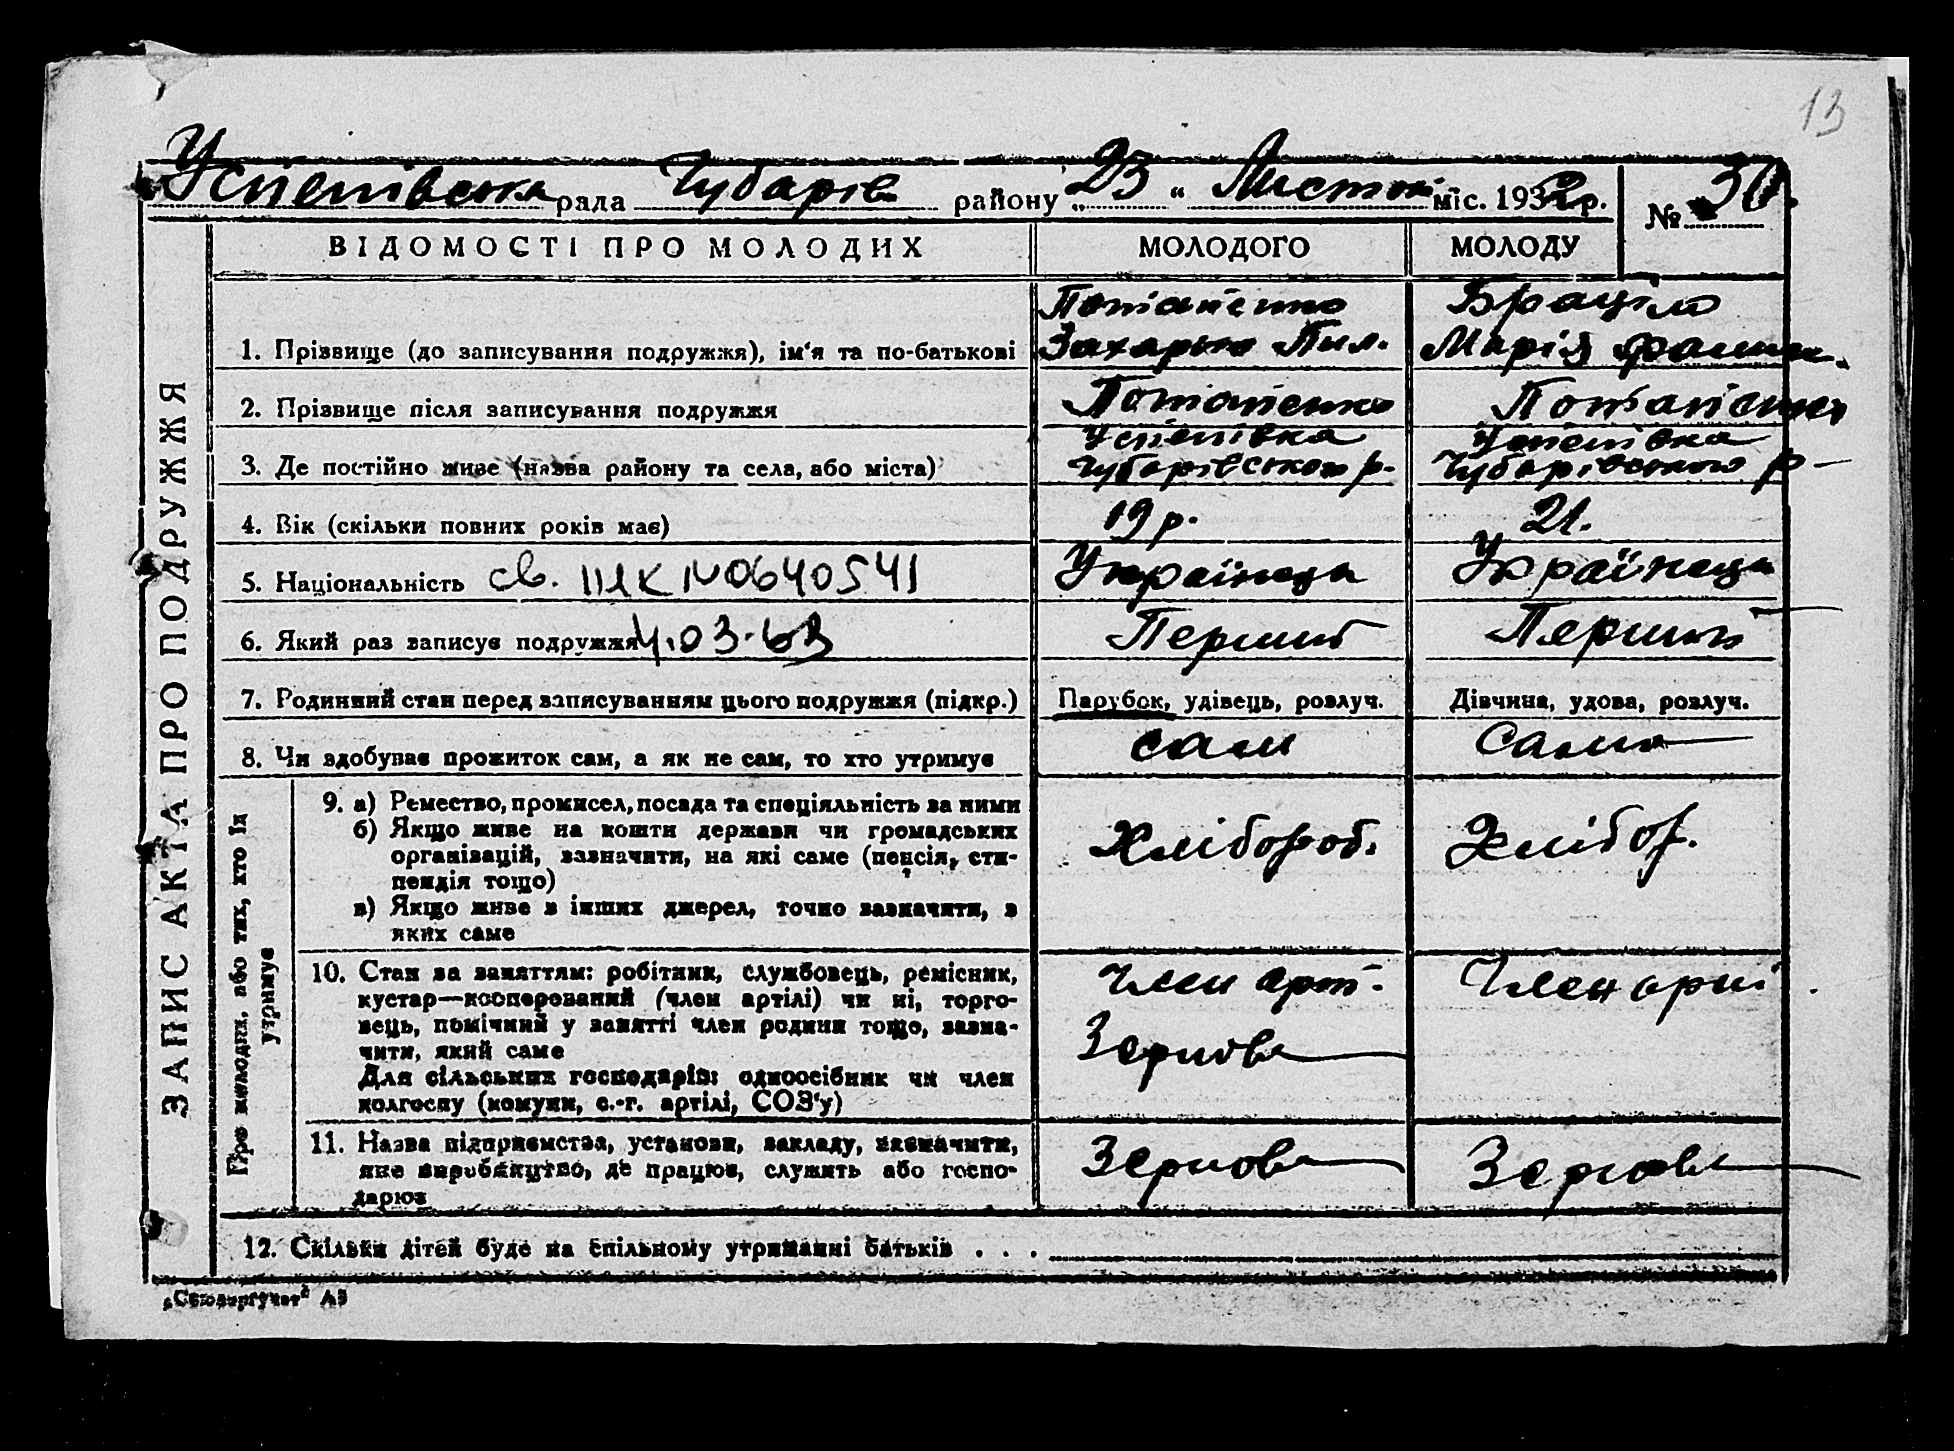 13
Успенівська рада Чубарів району „23“ Листоп. міс. 1932 р. № 30.
ЗАПИС АКТА ПРО ПОДРУЖЖЯ
ВІДОМОСТІ ПРО МОЛОДИХ МОЛОДОГО МОЛОДУ
Потапенко Браціло
1. Прізвище (до записування подружжя), ім'я та по-батькові Захарько Пил. Марія
2. Прізвище після записування подружжя Потапенко Потапенко
Успенівка Успенівка
3. Де постійно живе (назва району та села, або міста) Чубарівського р. Чубарівського р
4. Вік (скільки повних років має) 19 р. 21.
5. Національність св. ІІІЯК №0640541 Українець Українець
6. Який раз записує подружжя 4.03.63 Перший Перший
7. Родинний стан перед записуванням цього подружжя (підкр.) Парубок, удівець, розлуч. Дівчина, удова, розлуч.
8. Чи здобуває прожиток сам, а як не сам, то хто утримує сам Сама
Про молодих, або тих, хто їх
утримує
9. а) Ремество, промисел, посада та спеціяльність за ними
б) Якщо живе на кошти держави чи громадських Хлібороб. Хлібор.
організацій, зазначити, на які саме (пенсія, сти-
пендія тощо)
в) Якщо живе з інших джерел, точно зазначити, з
яких саме
10. Стан за заняттям: робітник, службовець, ремісник, Член арт. Член арті
кустар—кооперований (член артілі) чи ні, торго-
вець, помічний у занятті член родини тощо, зазна- Зернова
чити, який саме
Для сільських господарів: одноосібник чи член
колгоспу (комуни, с.-г. артілі, СОЗ'у)
11. Назва підприємства, установи, закладу, зазначити, Зернова Зернова
яке виробництво, де працює, служить або госпо-
дарює
12. Скільки дітей буде на спільному утриманні батьків . . .